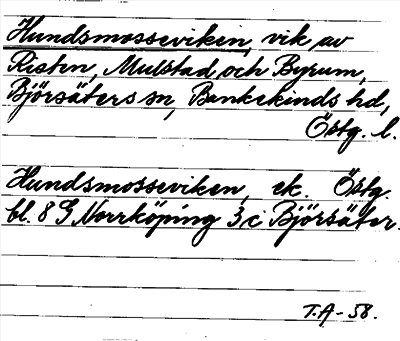 Hundsmosseviken, vik av
Risten, Mulstad och Byrum,
Björsäters sn, Bankekinds hd,
Östg. l.
Hundsmosseviken, ek. Östg.
bl. 8 G Norrköping 3 c Björsäter.
T.A - 58.